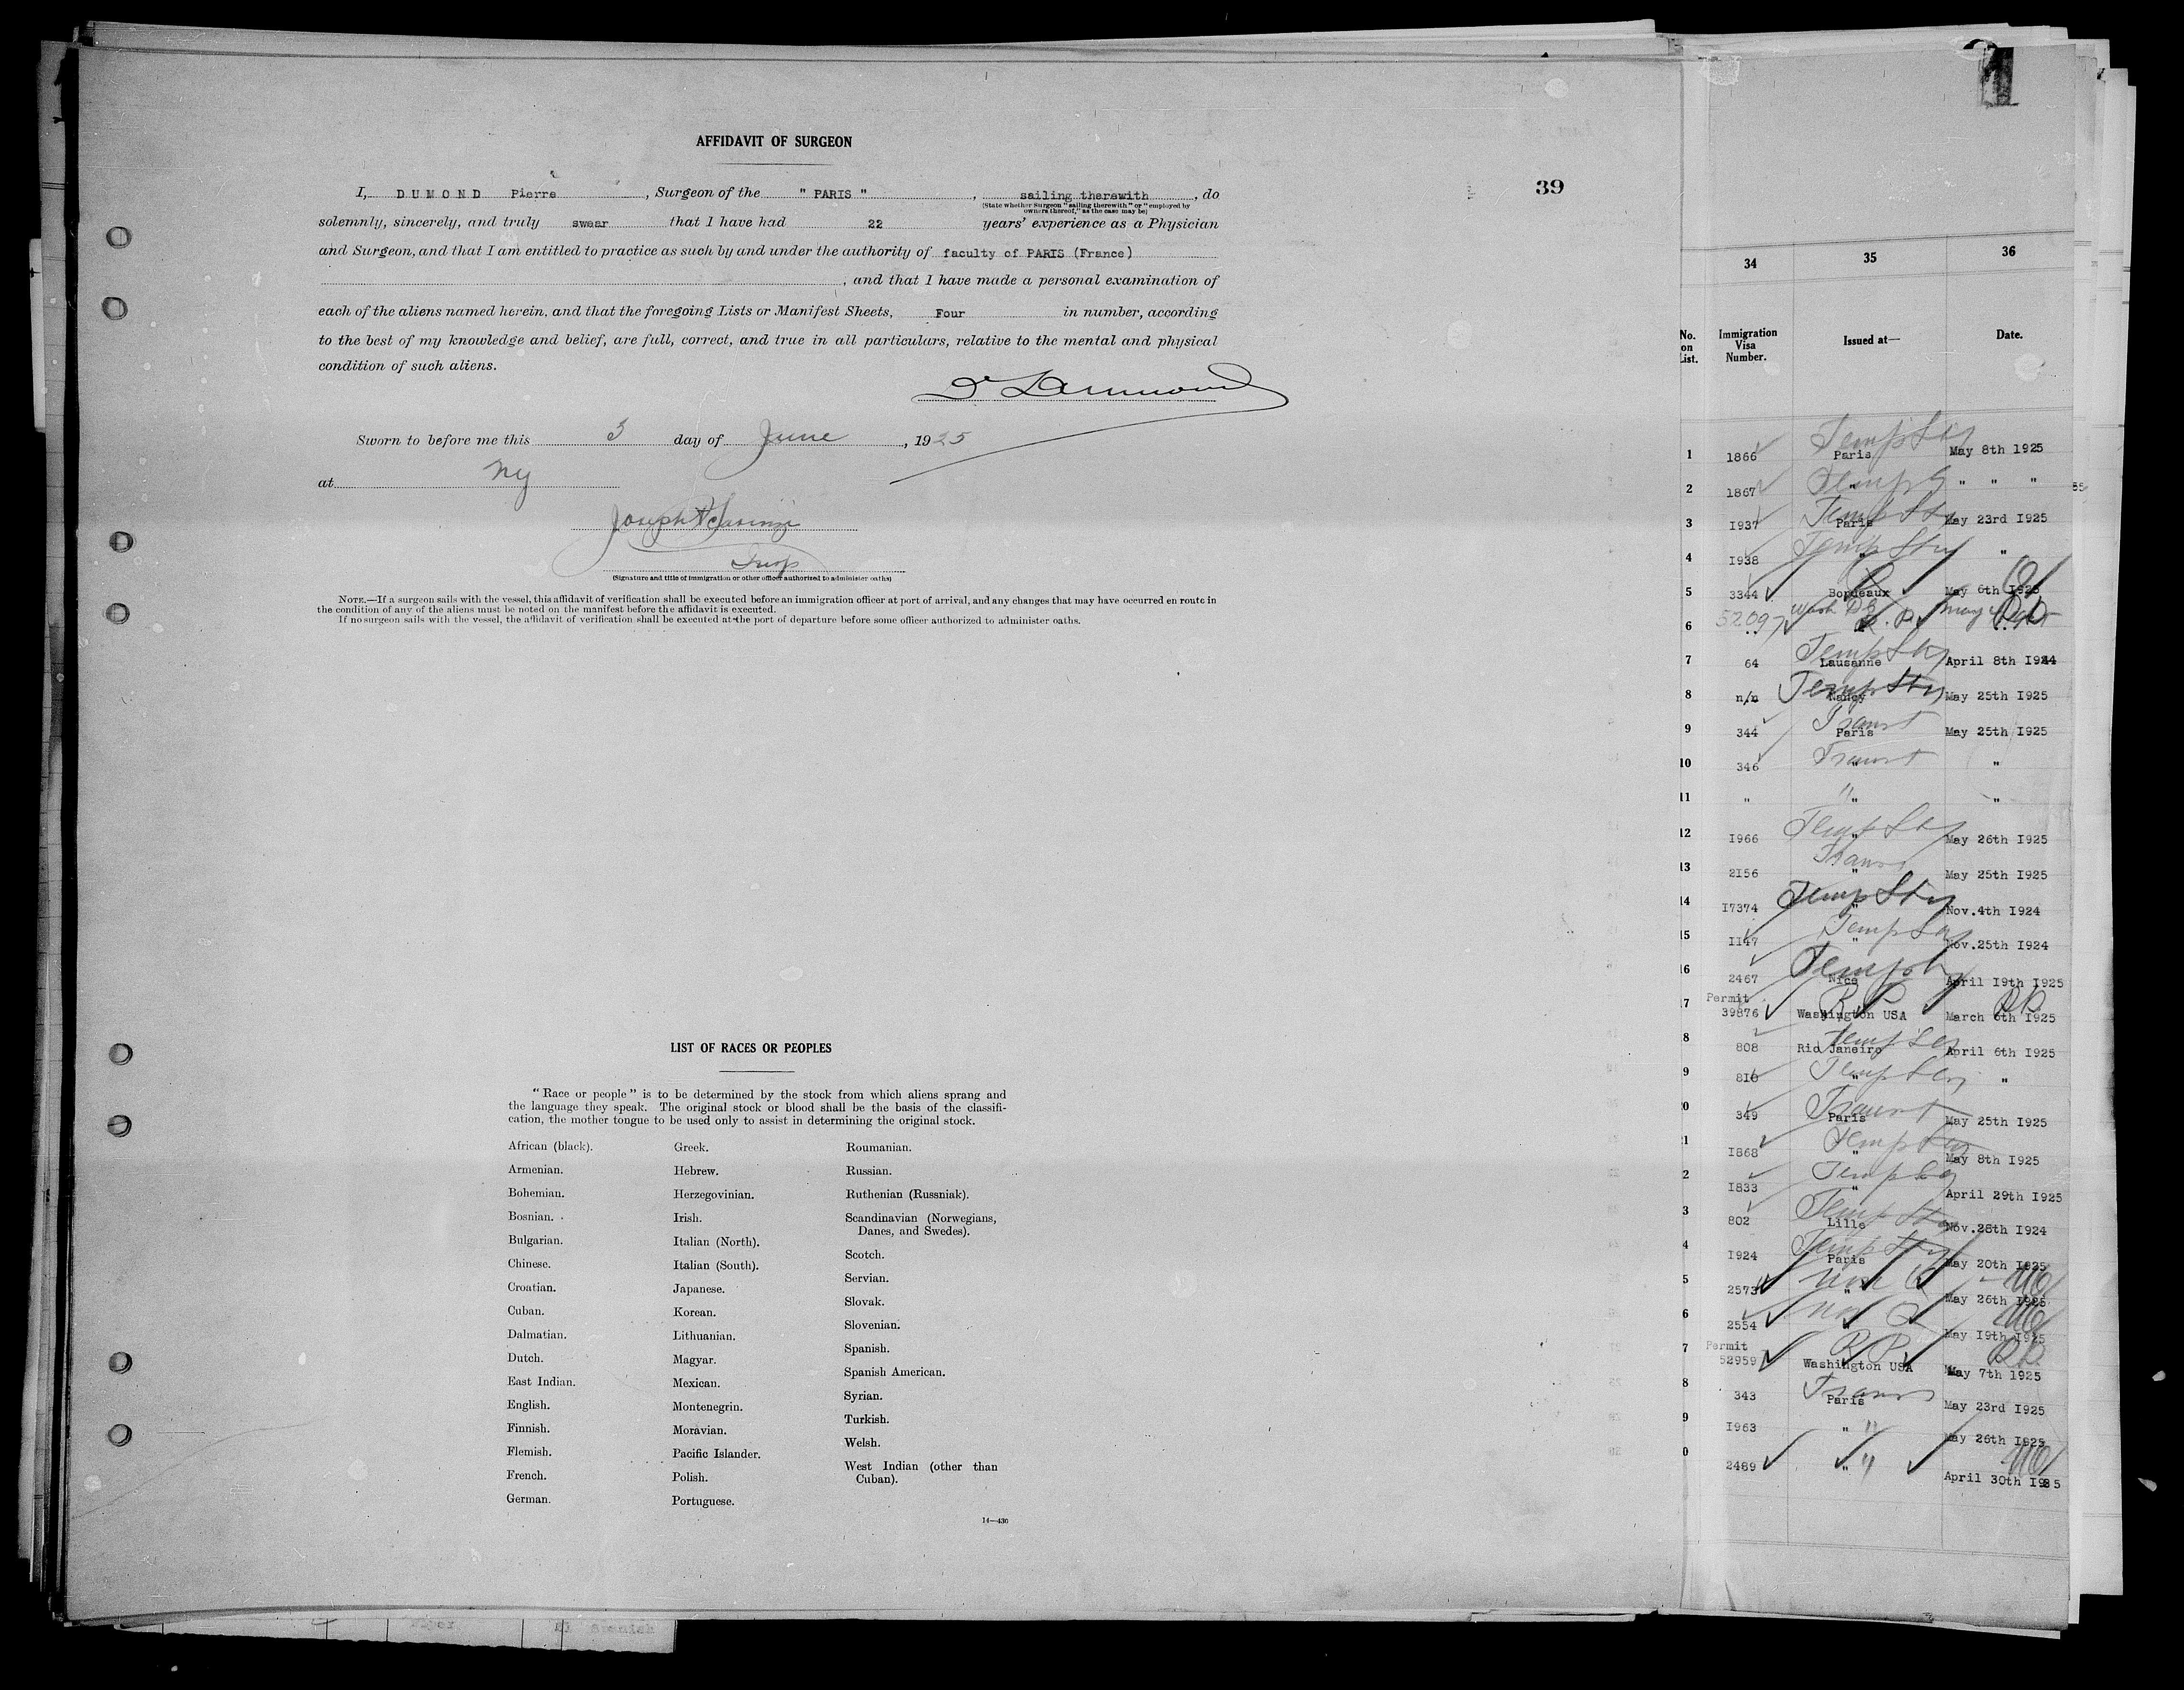 AFFIDAVIT OF SURGEON
39
I, DUMOND Pierre, Surgeon of the " PARIS ", sailing therewith, do
(State whether Surgeon "sailing therewith" or "employed by owners thereof," as the case may be)
solemnly, sincerely, and truly swear that I have had 22 years' experience as a Physician
and Surgeon, and that I am entitled to practice as such by and under the authority of faculty of PARIS (France)
, and that I have made a personal examination of
each of the aliens named herein, and that the foregoing Lists or Manifest Sheets, Four in number, according
to the best of my knowledge and belief, are full, correct, and true in all particulars, relative to the mental and physical
condition of such aliens.
Sworn to before me this 3 day of June, 1925
at NY
Joseph
Insp
(Signature and title of immigration or other officer authorized to administer oaths)
NOTE.—If a surgeon sails with the vessel, this affidavit of verification shall be executed before an immigration officer at port of arrival, and any changes that may have occurred en route in
the condition of any of the aliens must be noted on the manifest before the affidavit is executed.
If no surgeon sails with the vessel, the affidavit of verification shall be executed at the port of departure before some officer authorized to administer oaths.
LIST OF RACES OR PEOPLES
"Race or people" is to be determined by the stock from which aliens sprang and
the language they speak. The original stock or blood shall be the basis of the classifi-
cation, the mother tongue to be used only to assist in determining the original stock.
African (black).
Armenian.
Bohemian.
Bosnian.
Bulgarian.
Chinese.
Croatian.
Cuban.
Dalmatian.
Dutch.
East Indian.
English.
Finnish.
Flemish.
French.
German.
Greek.
Hebrew.
Herzegovinian.
Irish.
Italian (North).
Italian (South).
Japanese.
Korean.
Lithuanian.
Magyar.
Mexican.
Montenegrin.
Moravian.
Pacific Islander.
Polish.
Portuguese.
Roumanian.
Russian.
Ruthenian (Russniak).
Scandinavian (Norwegians,
Danes, and Swedes).
Scotch.
Servian.
Slovak.
Slovenian.
Spanish.
Spanish American.
Syrian.
Turkish.
Welsh.
West Indian (other than
Cuban).
14—430
34 35 36
No. on List. Immigration Visa Number. Issued at— Date.
1 1866 Temp Sty Paris May 8th 1925
2 1867 Temp " " " "
3 I937 Temp Sty Paris May 23rd I925
4 I938 Temp Sty " "
5 3344 Bordeaux May 6th I925
6 52097 Wash DC R.P. May
7 64 Temp Sty Lausanne April 8th I924
8 n/n Temp Sty Nancy May 25th I925
9 344 Transt Paris May 25th I925
10 346 Transt " "
11 " " "
12 I966 Temp Sty " May 26th I925
13 2I56 Trans " May 25th I925
14 I7374 Temp Sty " Nov.4th I924
15 II47 Temp Sty " Nov.25th I924
16 2467 Temp Sty Nice April I9th I925
7 Permit 39876 R P Washington USA March 6th I925 RP
8 808 Temp Sty Rio Janeiro April 6th I925
9 810 Temp Sty " "
0 349 Transt Paris May 25th I925
1 I868 Temp Sty " May 8th I925
2 I833 Temp Sty " April 29th I925
3 802 Temp Sty Lille Nov.28th I924
4 I924 Temp Sty Paris May 20th I925
5 2573 Non Q " May 26th I925
6 2554 Non Q May I9th I925
7 Permit 52959 R P Washington USA May 7th 1925 RP
8 343 Trans Paris May 23rd I925
9 I963 " " May 26th I925
0 2489 " " April 30th I925